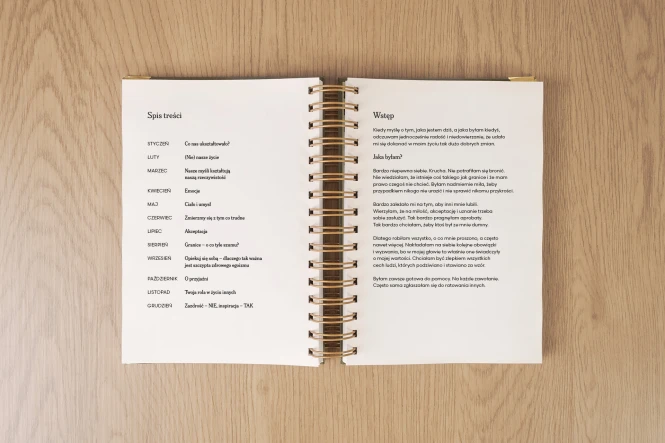 Spis treści
STYCZEŃ Co nas ukształtowało?
LUTY (Nie) nasze życie
MARZEC Nasze myśli kształtują
naszą rzeczywistość
KWIECIEŃ Emocje
MAJ Ciało i umysł
CZERWIEC Zmierzamy się z tym co trudne
LIPIEC Akceptacja
SIERPIEŃ Granice – o co tyle szumu?
WRZESIEŃ Opiekuj się sobą – dlaczego tak ważna
jest szczypta zdrowego egoizmu
PAŹDZIERNIK O przyjaźni
LISTOPAD Twoja rola w życiu innych
GRUDZIEŃ Zazdrość – NIE, inspiracja – TAK
Wstęp
Kiedy myślę o tym, jaka jestem dziś, a jaka byłam kiedyś,
odczuwam jednocześnie radość i niedowierzanie, że udało
mi się dokonać w moim życiu tak dużo dobrych zmian.
Jaka byłam?
Bardzo niepewna siebie. Krucha. Nie potrafiłam się bronić.
Nie wiedziałam, że istnieje coś takiego jak granice i że mam
prawo czegoś nie chcieć. Byłam nadmiernie miła, żeby
przypadkiem nikogo nie urazić i nie sprawić nikomu przykrości.
Bardzo zależało mi na tym, aby inni mnie lubili.
Wierzyłam, że na miłość, akceptację i uznanie trzeba
sobie zasłużyć. Tak bardzo pragnęłam aprobaty.
Tak bardzo chciałam, żeby ktoś był ze mnie dumny.
Dlatego robiłam wszystko, o co mnie proszono, a często
nawet więcej. Nakładałam na siebie kolejne obowiązki
i wyzwania, bo w mojej głowie to właśnie one świadczyły
o mojej wartości. Chciałam być zlepkiem wszystkich
cech ludzi, których podziwiano i stawiano za wzór.
Byłam zawsze gotowa do pomocy. Na każde zawołanie.
Często sama zgłaszałam się do ratowania innych.